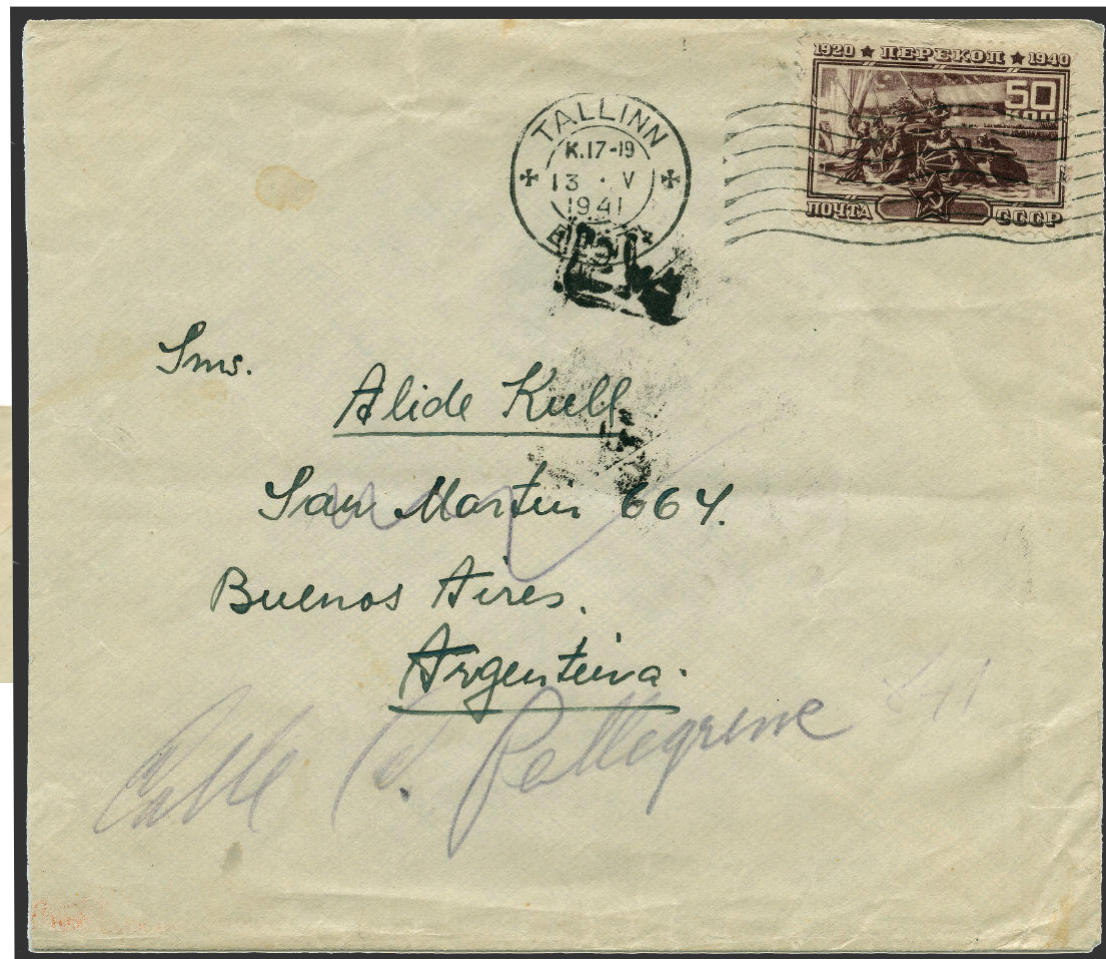 1920 ★ ПЕРЕКОП ★ 1940
50
КОП
ПОЧТА СССР
TALLINN
K.17-19
13 · V
1941
EESTI
Sms.
Alide Kull
San Martin 664.
Buenos Aires.
Argentina.
Calle C. Pellegrine 841